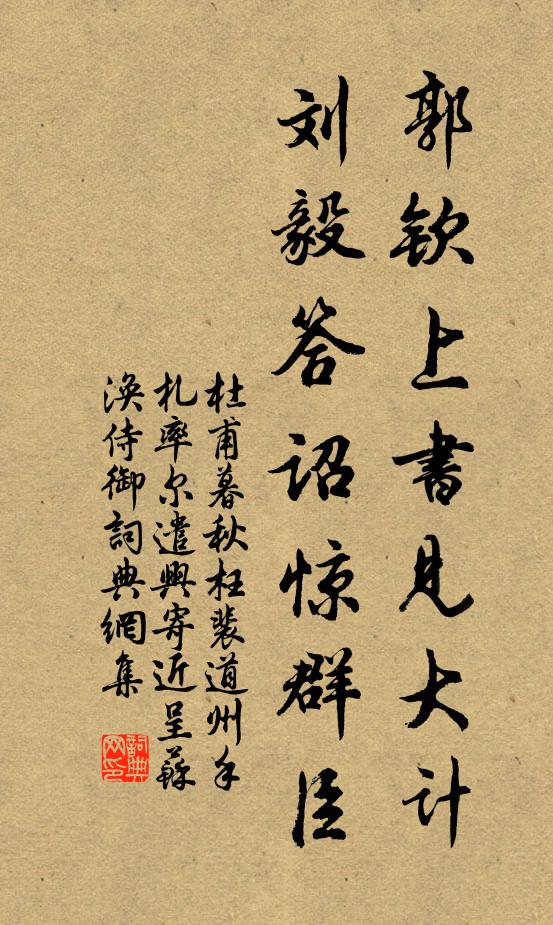 郭钦上書見大计
刘毅答诏惊群臣
杜甫暮秋枉裴道州手
札率尔遣興寄近呈蘇
渙侍御詞典網集
詞典
网印